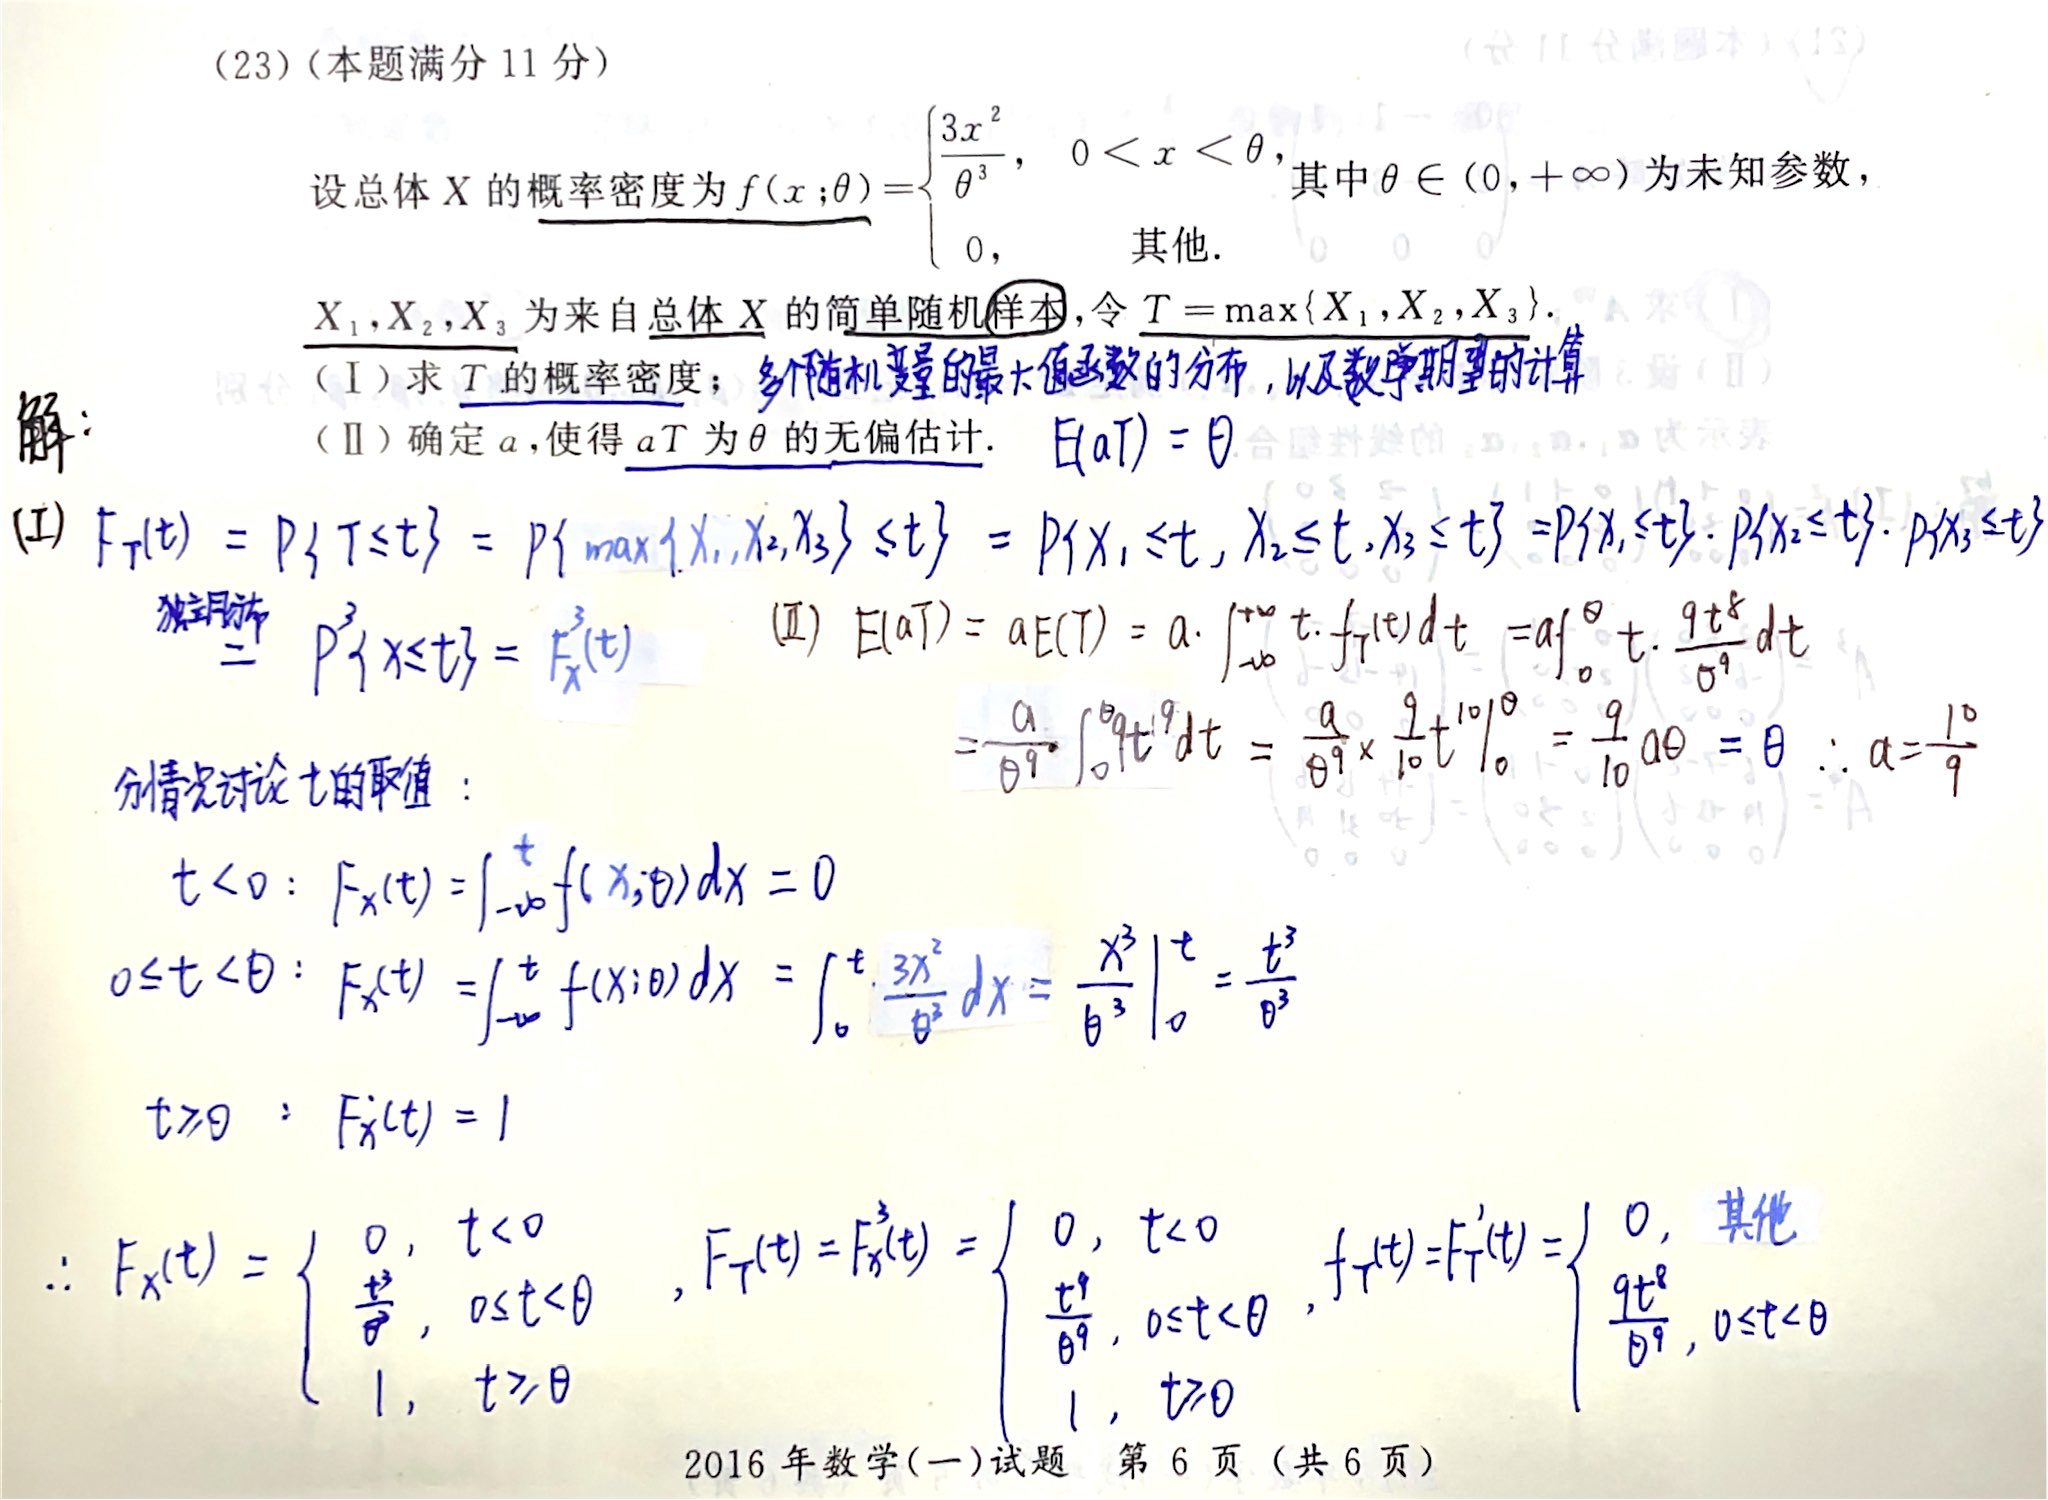 (23)(本题满分 11 分)
设总体 X 的概率密度为 f(x;θ) = { 3x²/θ³, 0 < x < θ, 0, 其他. 其中 θ ∈ (0, +∞) 为未知参数,
X₁,X₂,X₃ 为来自总体 X 的简单随机样本,令 T = max{X₁,X₂,X₃}.
(Ⅰ)求 T 的概率密度; 多个随机变量的最大值函数的分布,以及数学期望的计算
解:
(Ⅱ)确定 a,使得 aT 为 θ 的无偏估计. E(aT) = θ
(I) F_T(t) = P{T≤t} = P{max{X₁,X₂,X₃}≤t} = P{X₁≤t, X₂≤t, X₃≤t} = P{X₁≤t}·P{X₂≤t}·P{X₃≤t}
独立同分布 = P³{X≤t} = F_X³(t)
(Ⅱ) E(aT) = aE(T) = a·∫_{-∞}^{+∞} t·f_T(t)dt = a∫₀^θ t·9t⁸/θ⁹ dt
= a/θ⁹·∫₀^θ 9t⁹dt = a/θ⁹ × 9/10 t¹⁰|₀^θ = 9/10 aθ = θ ∴ a = 10/9
分情况讨论 t 的取值:
t<0: F_X(t) = ∫_{-∞}^t f(x;θ)dx = 0
0≤t<θ: F_X(t) = ∫_{-∞}^t f(x;θ)dx = ∫₀^t 3x²/θ³ dx = x³/θ³|₀^t = t³/θ³
t≥θ : F_X(t) = 1
∴ F_X(t) = { 0, t<0 t³/θ³, 0≤t<θ 1, t≥θ , F_T(t) = F_X³(t) = { 0, t<0 t⁹/θ⁹, 0≤t<θ 1, t≥θ , f_T(t) = F_T'(t) = { 0, 其他 9t⁸/θ⁹, 0≤t<θ
2016 年数学(一)试题 第 6 页 (共 6 页)